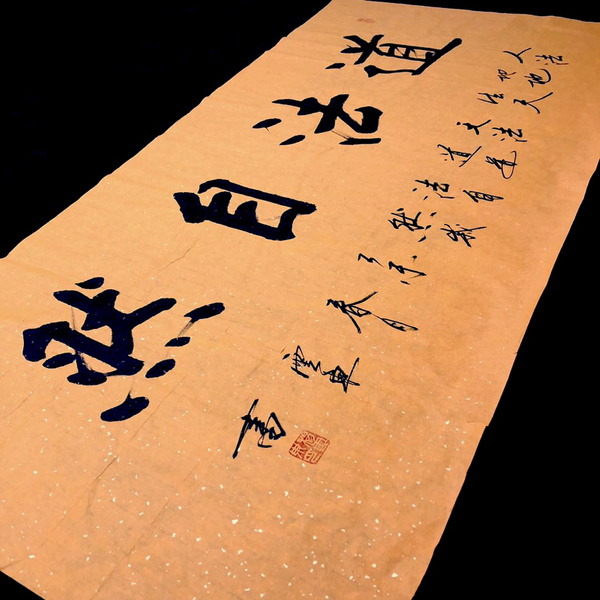 道法自然
人法
地地
法天
天法
道道
法自
然歲
春月
書